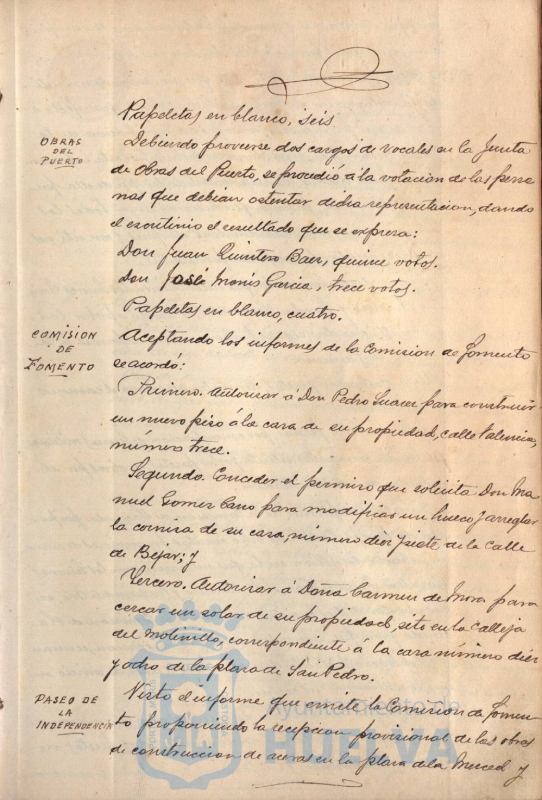 Papeletas en blanco, seis
OBRAS
DEL
PUERTO
Debiendo proveerse dos cargos de vocales en la Junta
de Obras del Puerto, se procedió á la votación de las perso
nas que debian ostentar dicha representacion, dando
el escrutinio el resultado que se expresa:
Don Juan Quintero Baez, quince votos.
Don José Monis Garcia, trece votos.
Papeletas en blanco, cuatro.
COMISION
DE
FOMENTO
Aceptando los informes de la Comision de Fomento
se acordó:
Primero. Autorizar á Don Pedro Suarez para construir
un nuevo piso á la casa de su propiedad, calle Valencia,
número trece.
Segundo. Conceder el permiso que solicita Don Ma
nuel Gomez Cano para modificar un hueco y arreglar
la cornisa de su casa, número diez y siete, de la calle
de Béjar; y
Tercero. Autorizar á Doña Carmen de Mora para
cercar un solar de su propiedad, sito en la Calleja
del Molinillo, correspondiente á la casa número diez
y ocho de la plaza de San Pedro.
PASEO DE
LA
INDEPENDENCIA
Visto el informe que emite la Comision de Fomen
to proponiendo la recepcion provisional de las obras
de construccion de aceras en la plaza de la Merced y
Ayuntamiento de
HUELVA